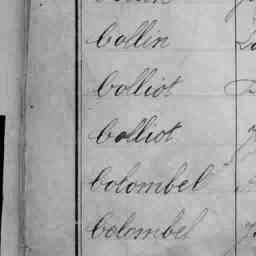 Collin
Colliot
Colliot
Colombel
Colombel